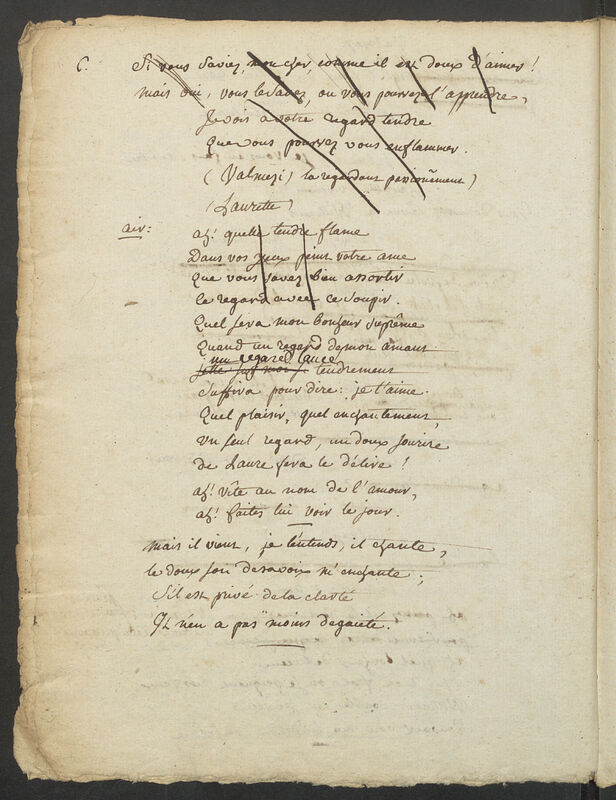 6. Si vous saviez, mon cher, comme il est doux d'aimer!
mais oui, vous le savez, ou vous pourrez l'apprendre,
Je vois a votre regard tendre
Que vous pourrez vous enflammer.
(Valmezi) la regardant passionément)
(Laurette)
air: ah! quelle tendre flame
Dans vos yeux peint votre ame
Que vous savez bien assortir
Ce regard avec ce soupir.
Quel sera mon bonheur suprême
Quand un regard de mon amant
un regard lancé
jetté sur moi tendrement
Suffira pour dire: je t'aime.
Quel plaisir, quel enchantement,
un seul regard, un doux sourire
de Laure fera le délire!
ah! vite au nom de l'amour,
ah! faites lui voir le jour.
mais il vient, je l'entends, il chante,
le doux son de sa voix m'enchante;
S'il est privé de la clarté
Il n'en a pas moins de gaieté.